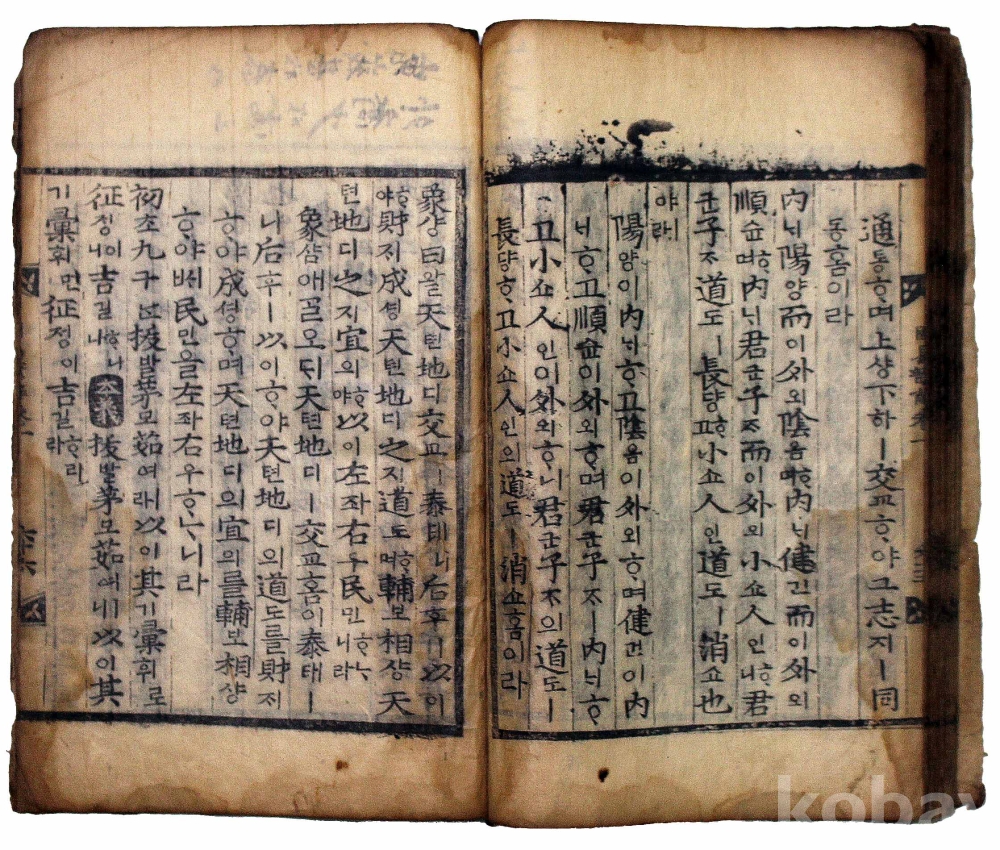 通통ᄒᆞ며上샹下하ㅣ交교ᄒᆞ야그志지ㅣ同
동홈이라
內ᄂᆡ陽양而이外외陰음ᄒᆞ며內ᄂᆡ健건而이外외
順슌ᄒᆞ며內ᄂᆡ君군子ᄌᆞ而이外외小쇼人인ᄒᆞ니君
군子ᄌᆞ道도ㅣ長댱ᄒᆞ고小쇼人인道도ㅣ消쇼也
야ㅣ라
陽양이內ᄂᆡᄒᆞ고陰음이外외ᄒᆞ며健건이內
ᄂᆡᄒᆞ고順슌이外외ᄒᆞ며君군子ᄌᆞㅣ內ᄂᆡᄒᆞ
고小쇼人인이外외ᄒᆞ니君군子ᄌᆞ의道도ㅣ
長댱ᄒᆞ고小쇼人인의道도ㅣ消쇼홈이라
象샹曰왈天텬地디交교ㅣ泰태니后후ㅣ以이
ᄒᆞ야財ᄌᆡ成셩天텬地디之지道도ᄒᆞ며輔보相샹天
텬地디之지宜의ᄒᆞ야以이左좌右우民민ᄒᆞᄂᆞ니라
象샹애ᄀᆞᆯ오ᄃᆡ天텬地디ㅣ交교홈이泰태ㅣ
니后후ㅣ以이ᄒᆞ야天텬地디의道도를財ᄌᆡ
ᄒᆞ야成셩ᄒᆞ며天텬地디의宜의를輔보相샹
ᄒᆞ야ᄡᅥ民민을左좌右우ᄒᆞᄂᆞ니라
初초九구ᄂᆞᆫ拔발茅모茹여ㅣ라以이其기彙휘로
征졍이니吉길ᄒᆞ니라 拔발茅모茹여ㅣ니以이其
기彙휘면征졍이吉길ᄒᆞ리라
kobay